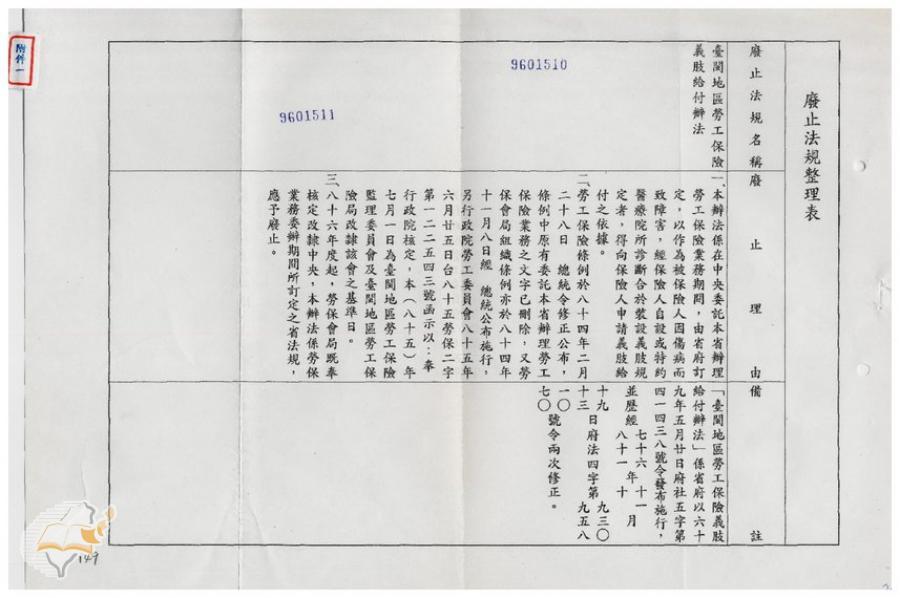 附件一
廢止法規整理表
廢止法規名稱
臺閩地區勞工保險
義肢給付辦法
9601510
9601511
廢止理由
一、本辦法係在中央委託本省辦理
勞工保險業務期間,由省府訂
定,以作為被保險人因傷病而
致障害,經保險人自設或特約
醫療院所診斷合於裝設義肢規
定者,得向保險人申請義肢給
付之依據。
二、勞工保險條例於八十四年二月
二十八日 總統令修正公布,
條例中原有委託本省辦理勞工
保險業務之文字已刪除,又勞
保會局組織條例亦於八十四年
十一月八日經 總統公布施行,
另行政院勞工委員會八十五年
六月廿五日台八十五勞保二字
第一二二五四三號函示以:奉
行政院核定,本(八十五)年
七月一日為臺閩地區勞工保險
監理委員會及臺閩地區勞工保
險局改隸該會之基準日。
三、八十六年度起,勞保會局既奉
核定改隸中央,本辦法係勞保
業務委辦期間所訂定之省法規,
應予廢止。
備註
「臺閩地區勞工保險義肢
給付辦法」係省府以六十
九年五月廿日府社五字第
四一四三八號令發布施行,
並歷經 七十六 年 十一 月
八十一 十
十九 日府法四字第 九三〇
十三 九五八
一〇 號令兩次修正。
七〇
149